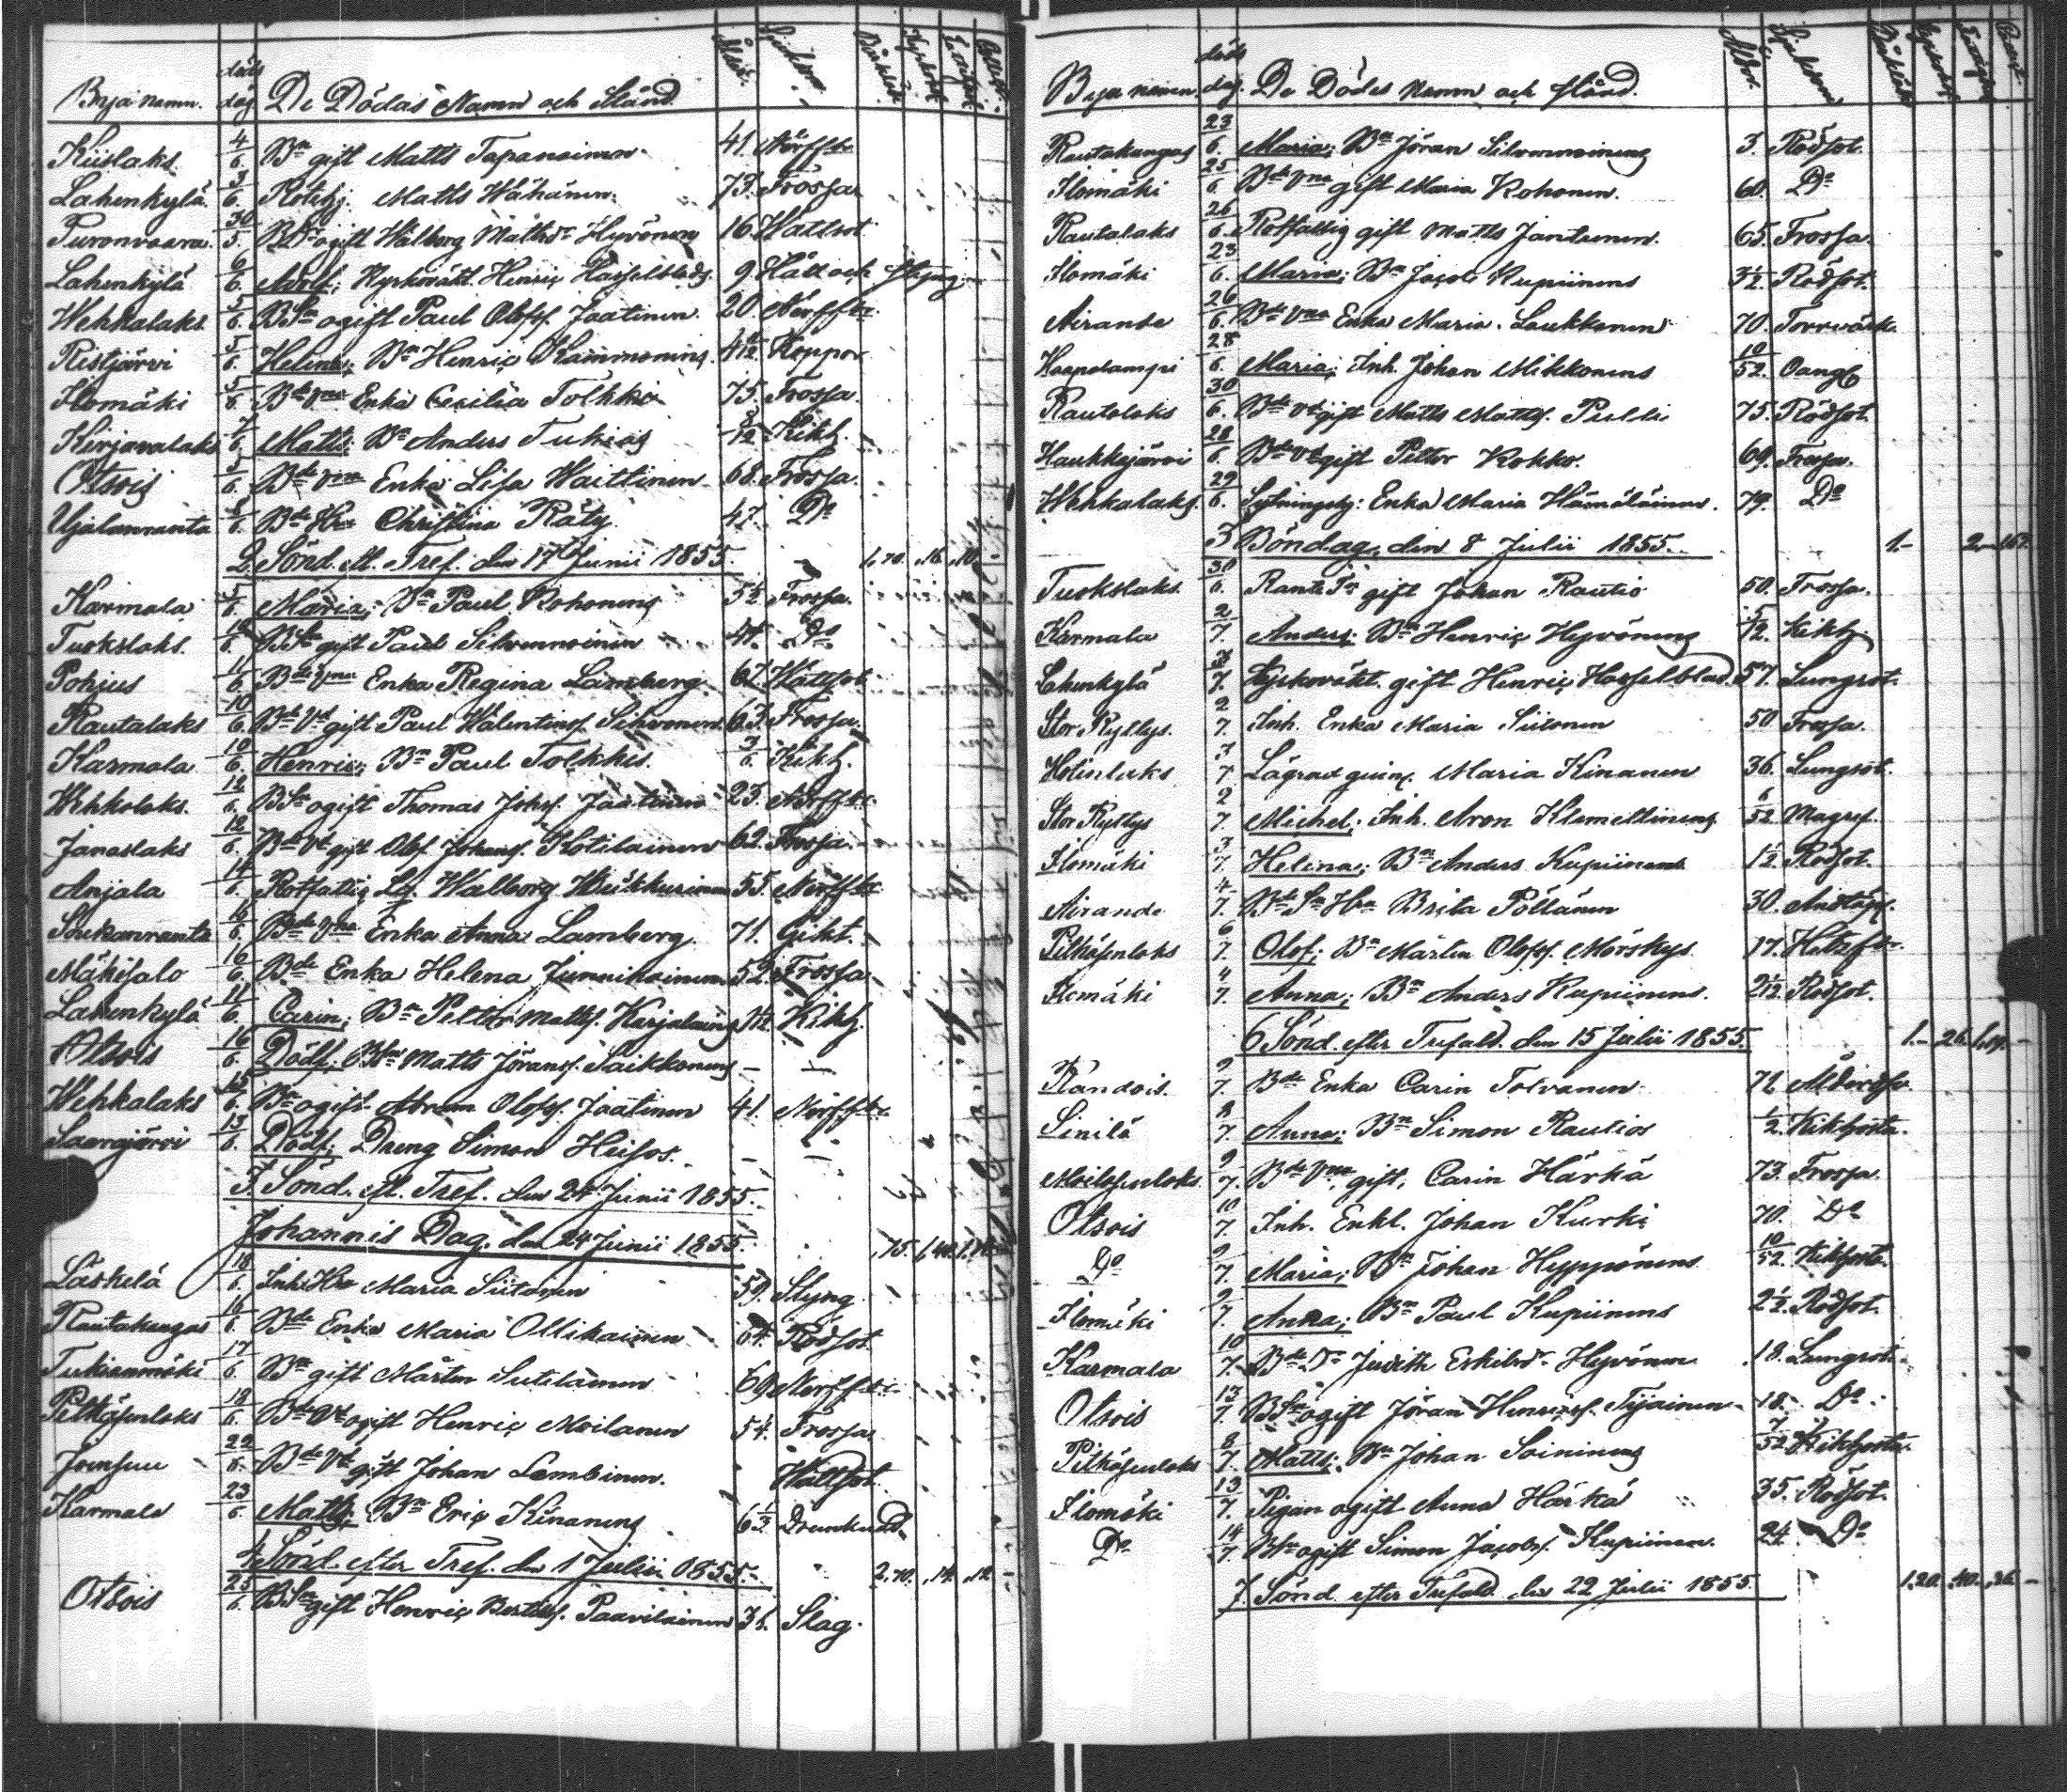 Byanamn. döds dag. De Dödas Namn och Stånd. Ålder. Sjukdom
Kiislaks 4/6. Bn gift Matts Tapanainen 41. Nerffbr
Lahenkylä 3/6. Rotehj. Matts Hähänen. 73. Frossa
Puronvaara 30/5. BDr ogift Walborg Mattsdr Hyvönen 16. Håttsot
Lahenkylä 6/6. Adolf; Kyrkoväkt. Henric Hasselblads. 9. Håll och Styng
Wehkalaks 5/6. BSn ogift Paul Olofss. Jaatinen. 20. Nerffbr
Ristjärvi 5/6. Helena; Bn Henric Kammonens. 4/12. Koppor
Ilomäki 5/6. Bde Vna Enka Cecilia Tolkki 75. Frossa.
Kirjavalaks 7/6. Matts; Bn Anders Tukias /12 Kikh.
Otsois 5/6. Bde Vna Enka Lisa Waittinen 68. Frossa.
Ujalanranta 5/6. Bde Hu Christina Räty 47. Do
2. Sönd. ef. Tref. den 17 Junii 1855. 1,70. ,16. ,10. -
Karmala 5/6. Maria; Bn Paul Kohonens 5 1/2 Frossa.
Tuokslaks. /6. BSn gift Paul Silvennoinen 44. Do
Pohjus 11/6. Bde Vna Enka Regina Lamberg. 67. Håttsot
Rautalaks 10/6. Bde Vd gift Paul Walentinss. Sihvonen. 63. Frossa.
Karmala 10/6. Henric; Bn Paul Tolkkis. Kikh.
Wehkalaks. 12/6. BSn ogift Thomas Johss. Jaatinen 23. Nerffbr.
Janaslaks 12/6. Bde Vd gift Olof Johanss. Kotilainen 62. Frossa.
Anjala 14/6. Rotfattig Lg. Walborg 55. Nerffbr
Soukanranta 16/6. Bde Vna Enka Anna Lamberg. 71. Gikt.
Mäkisalo 16/6. Bde Enka Helena Junnikainen 52. Frossa.
Lahenkylä 11/6. Carin; Bn Petter Mattss. Karjalains Kikh.
Otsois 16/6. Dödf; BSn Matts Jöranss. Saikkonens - -
Wehkalaks 15/6. Bn ogift Abram Olofss. Jaatinen 41. Nerffbr.
Saarajärvi 13/6. Dödf; Dreng Simon Heisos. - -
3. Sönd. ef. Tref. den 24 Junii 1855.
Johannis Dag. den 24 Junii 1855. ,15.
Läskelä 18/6. Inh. Hu Maria Siitonen 59. Styng
Rautakangas 16/6. Bde Enka Maria Ollikainen 64. Rödsot
Tukianmäki 17/6. Bn gift Mårten Sutilainen 69. Nerffbr.
Pitkäsenlaks 18/6. Bde Vd ogift Henric Moilanen 54. Frossa
Joensuu 22/6. Bde Vd gift Johan Lambinen. Håttsot
Karmala 23/6. Matts; Bn Eric Kinanens 6 1/3. Drunknad.
4. Sönd. efter Tref. den 1 Julii 1855. 2,70. ,14. ,12. -
Otsois 25/6. BSn gift Henric Bertilss. Paavilainen 36. Slag.
Byanamn. döds dag. De Dödes Namn och Stånd. Ålder. Sjukdom
Rautakangas 23/6. Maria; Bn Jöran Silvennoinens 3. Rödsot.
Ilomäki 25/6. Bde Vna gift Maria Kohonen. 60. Do
Rautalaks 26/6. Rotfattig gift Matts Jantunen. 65. Frossa.
Ilomäki 23/6. Maria; Bn Jacob Kupiinens Rödsot.
Airande 26/6. Bde Vna Enka Maria Laukkanen 70. Torrvärk.
Haapalampi 28/6. Maria; Inh. Johan Mikkonens 10/52. Oangf
Rautalaks 30/6. Bde Vd gift Matts Mattss. Pulli 75. Rödsot.
Haukkajärvi 28/6. Bde Vd gift Petter Kokko. 69. Frossa.
Wehkalaks. 29/6. Sytningshj: Enka Maria Hämäläinen. 79. Do
3 Böndag, den 8 Julii 1855. 1.-
Tuokslaks. 30/6. gift Johan Rautio 50. Frossa.
Karmala 2/7. Anders; Bn Henric Hyvönens 5/12. Kikh
Lahenkylä 3/7. Kyrkoväkt. gift Henric Hasselblad. 57. Lungsot.
Stor Kyttys. 2/7. Inh. Enka Maria Siitonen 50. Frossa.
Hotinlaks 7/7 Lägrad quinc. Maria Kinanen 36. Lungsot.
Stor Kyttys 2/7. Michel; Inh. Aron Klemettinens 6/52 Magref.
Ilomäki 3/7 Helena; Bn Anders Kupiinens 1 1/2. Rödsot.
Airande 4/7. Bde Sn Hu Brita Pöllänen 30. Andtäpp.
Pitkäsenlaks 6/7. Olof; Bn Mårten Olofss. Mörskys 17. Hetsfbr.
Ilomäki 4/7. Anna; Bn Anders Kupiinens. 2 1/2. Rödsot.
6 Sönd. efter Trefald. den 15 Julii 1855. 1.- 26.
Randois. 9/7. Bde Enka Carin Tolvanen 72 Ålderdsv
Sinilä 8/7. Anna; Bn Simon Rautios 1/2. Kikhosta.
Moilasenlaks 9/7. Bde Vna gift, Carin Härkä 73. Frossa.
Otsois 10/7. Inh. Enkl. Johan Kurki 70. Do
Do 9/7. Maria; Bn Johan Hyppönens 10/52. Kikhosta.
Ilomäki 9/7. Anna; Bn Paul Kupiinens 2 1/2. Rödsot.
Karmala 10/7. Bde Dr Judith Eskilsdr Hyvönen 18. Lungsot.
Otsois 13/7. BSn ogift Jöran Henricss. Tijainen 18. Do
Pitkäsenlaks 8/7. Matts; Bn Johan Soininens 7/52 Kikhosta.
Ilomäki 13/7. Pigan ogift Anna Härkä 35. Rödsot.
Do 14/7 BSn ogift Simon Jacobss. Kupiinen. 24. Do
7. Sönd. efter Trefald. den 22 Julii 1855. 1,20. ,40. ,26. -